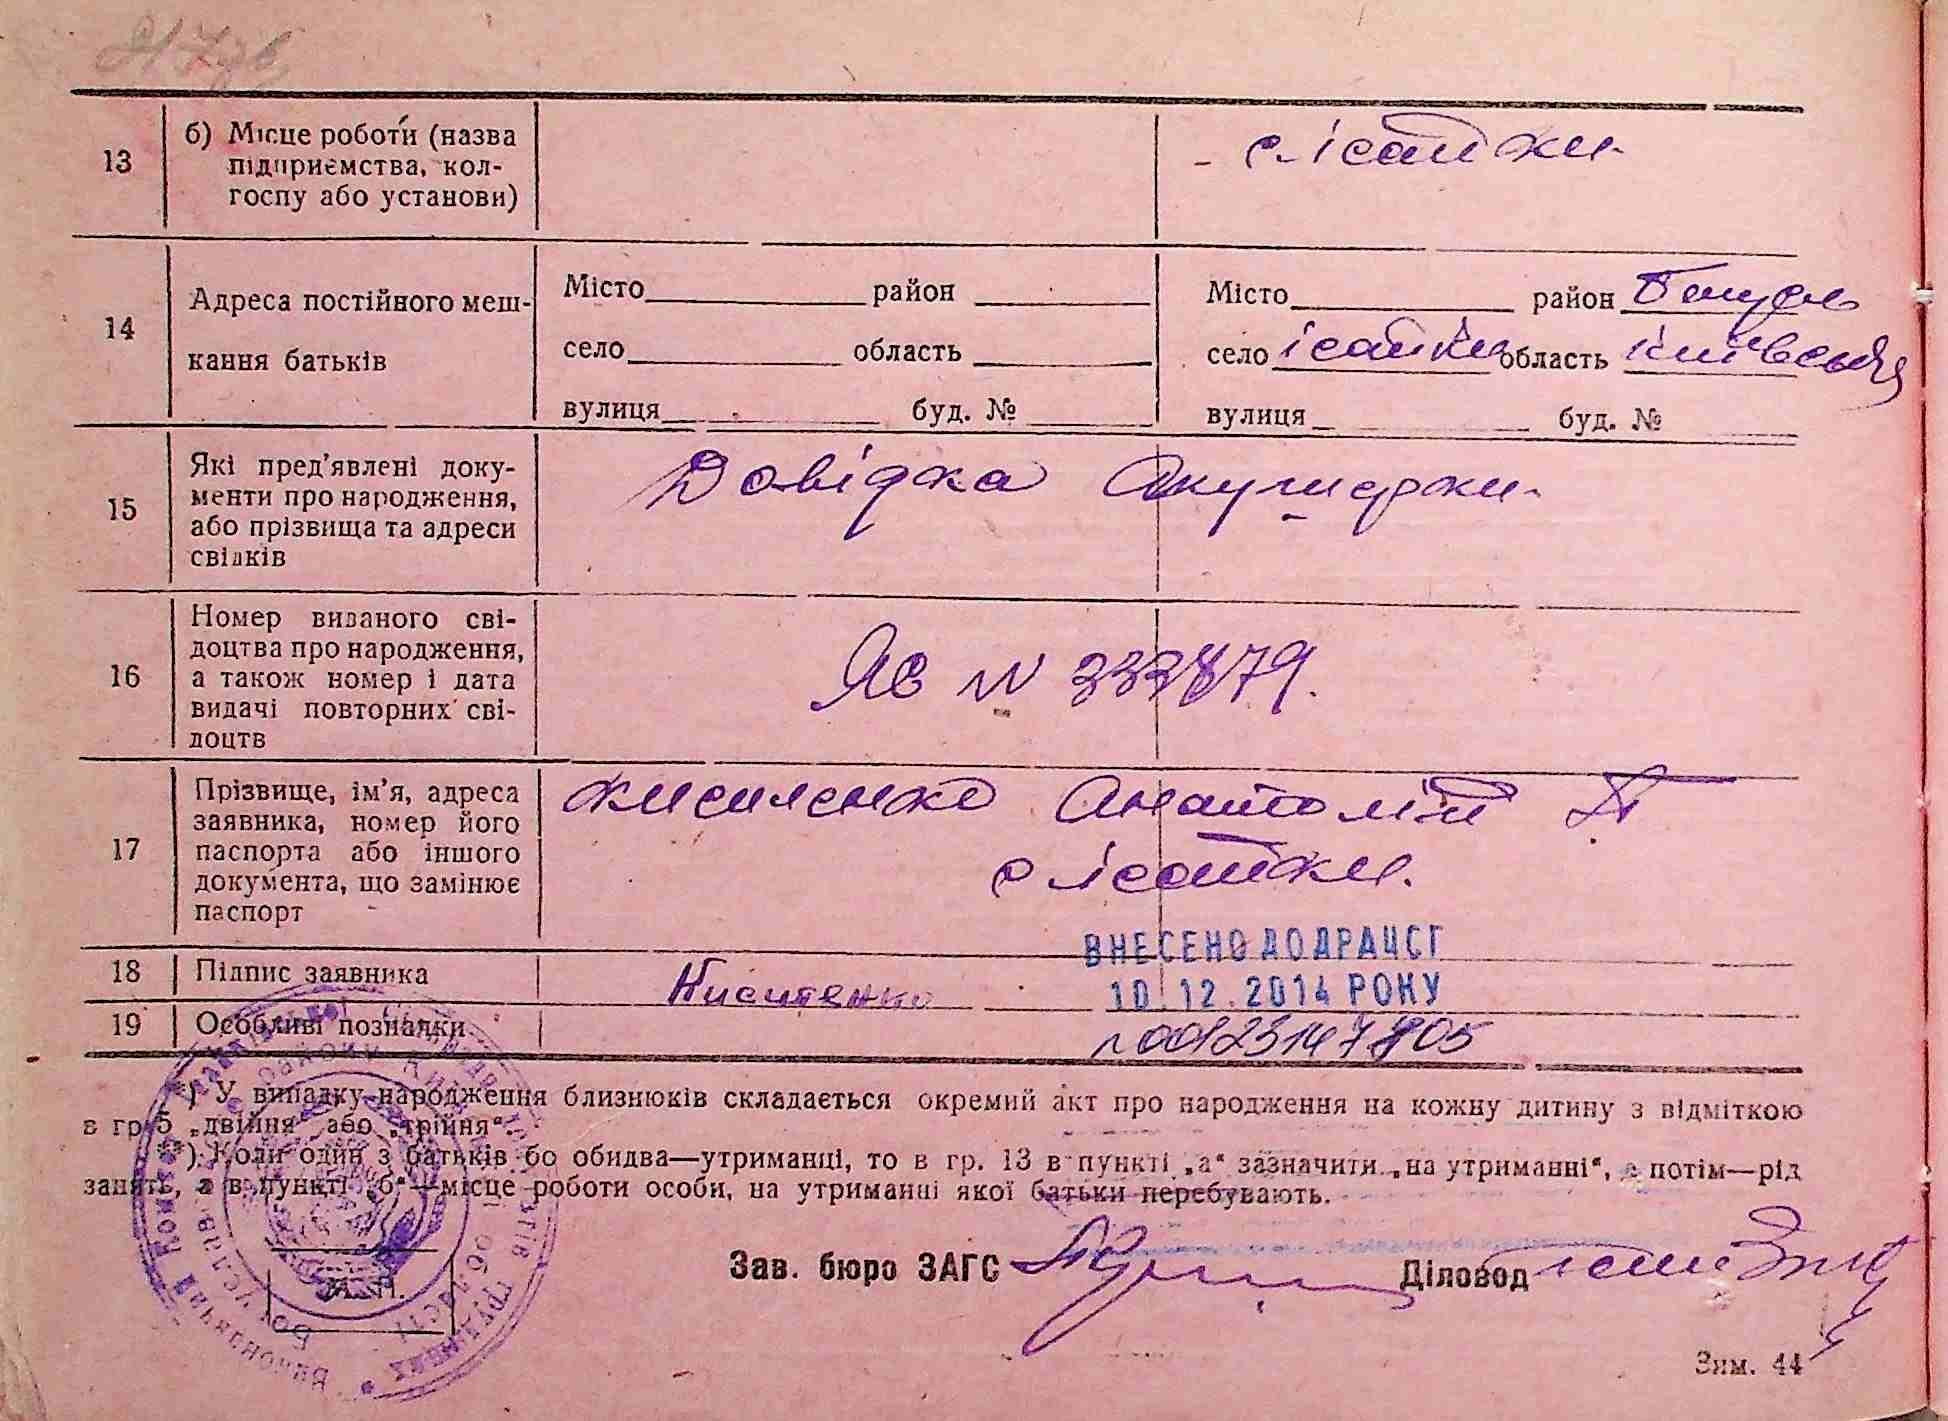 13
б) Місце роботи (назва
підприємства, кол-
госпу або установи)
с. Ісайки
14
Адреса постійного меш-
кання батьків
Місто район
село область
вулиця буд. №
Місто район Богусл
село Ісайки область Київська
вулиця буд. №
15
Які пред'явлені доку-
менти про народження,
або прізвища та адреси
свідків
Довідка Акушерки
16
Номер виданого сві-
доцтва про народження,
а також номер і дата
видачі повторних сві-
доцтв
ЯВ N 333879.
17
Прізвище, ім'я, адреса
заявника, номер його
паспорта або іншого
документа, що замінює
паспорт
Кисиленко Анатолій П
с Ісайки.
ВНЕСЕНО ДО ДРАЦСГ
10.12.2014 РОКУ
18
Підпис заявника
Кисиленко
19
Особливі познаки
*) У випадку народження близнюків складається окремий акт про народження на кожну дитину з відміткою
в гр. 5 „двійня“ або „трійня“.
**) Коли один з батьків бо обидва—утриманці, то в гр. 13 в пункті „а“ зазначити „на утриманні“, а потім—рід
занять, а в пункті „б“—місце роботи особи, на утриманні якої батьки перебувають.
Зав. бюро ЗАГС
Діловод
М. П.
Зим. 44